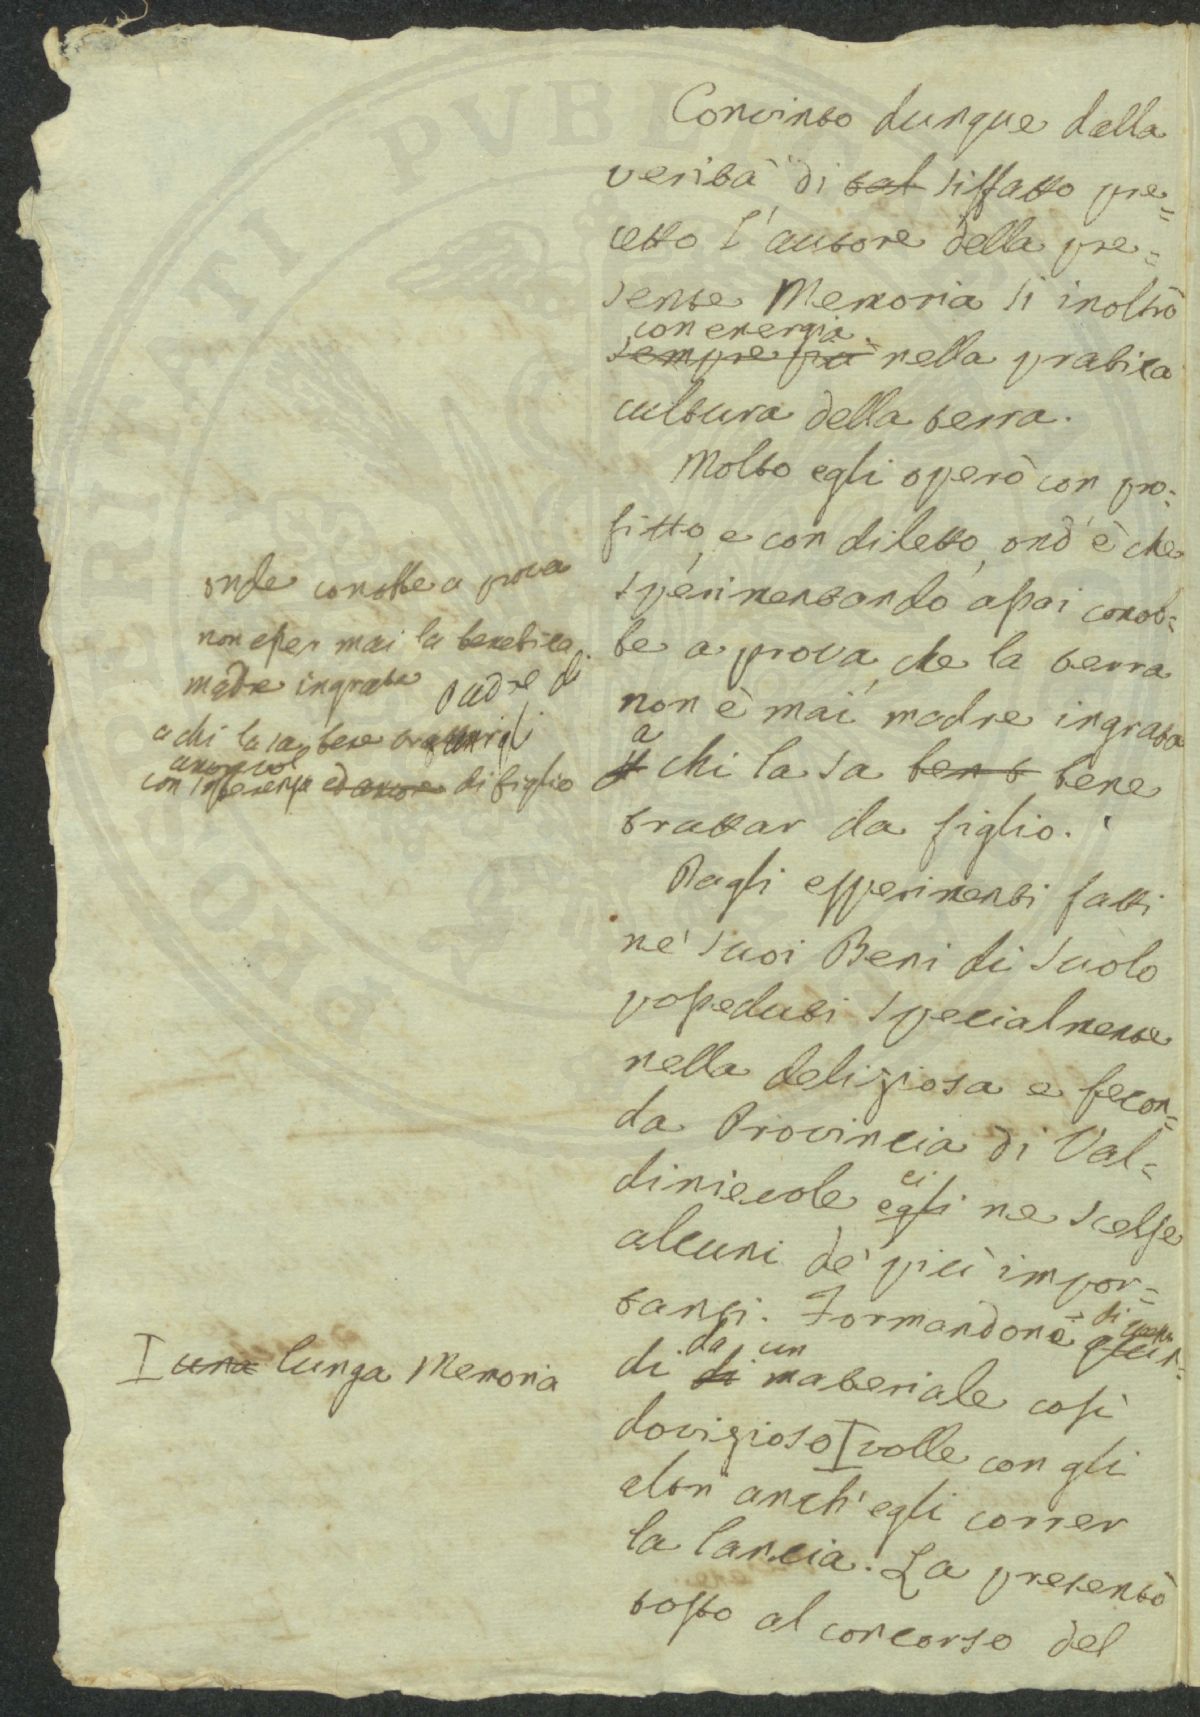 Convinto dunque dalla
verità di tal siffatto pre=
cetto l'autore della pre=
sente Memoria si inoltrò
con energia
sempre più nella pratica
cultura della terra.
Molto egli operò con pro=
fitto, e con diletto, ond'è che
sperimentando assai conob=
be a prova, che la terra
non è mai madre ingrata
a
chi la sa bene
trattar da figlio.
Dagli esperimenti fatti
ne' suoi Beni di suolo
posseduti specialmente
nella deliziosa e fecon=
da Provincia di Val=
dinievole
ei
egli ne scelse
alcuni de' più impor=
tanti. Formandone
di da un
di materiale così
dovizioso I volle con gli
altri anch'egli correr
la lancia. La presentò
tosto al concorso del
onde conobbe a prova
non esser mai la
madre ingrata padre di
a chi la sa bene
con di figlio
I una lunga Memoria